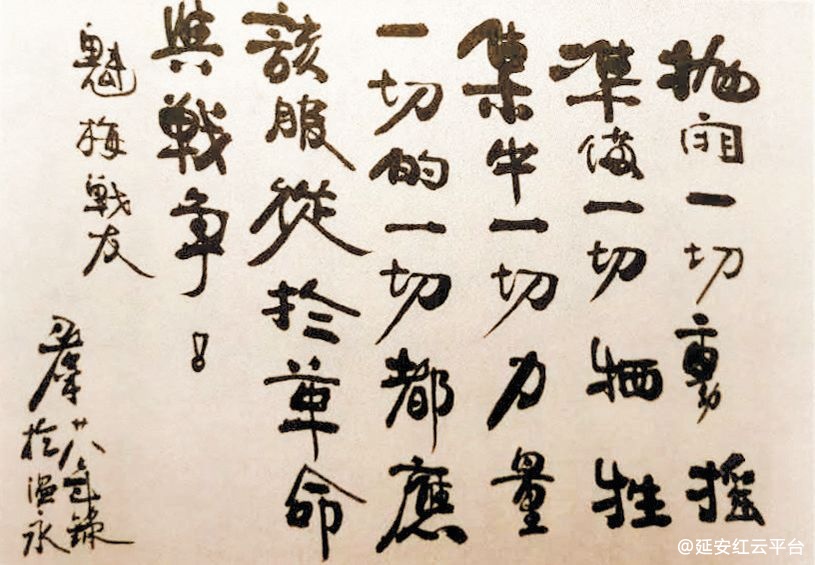 抛開一切動摇
準備一切牺牲
集中一切力量
一切的一切都應
該服從於革命
與戰争！
魁梅戰友
廿八年錄
於温永
@延安红云平台